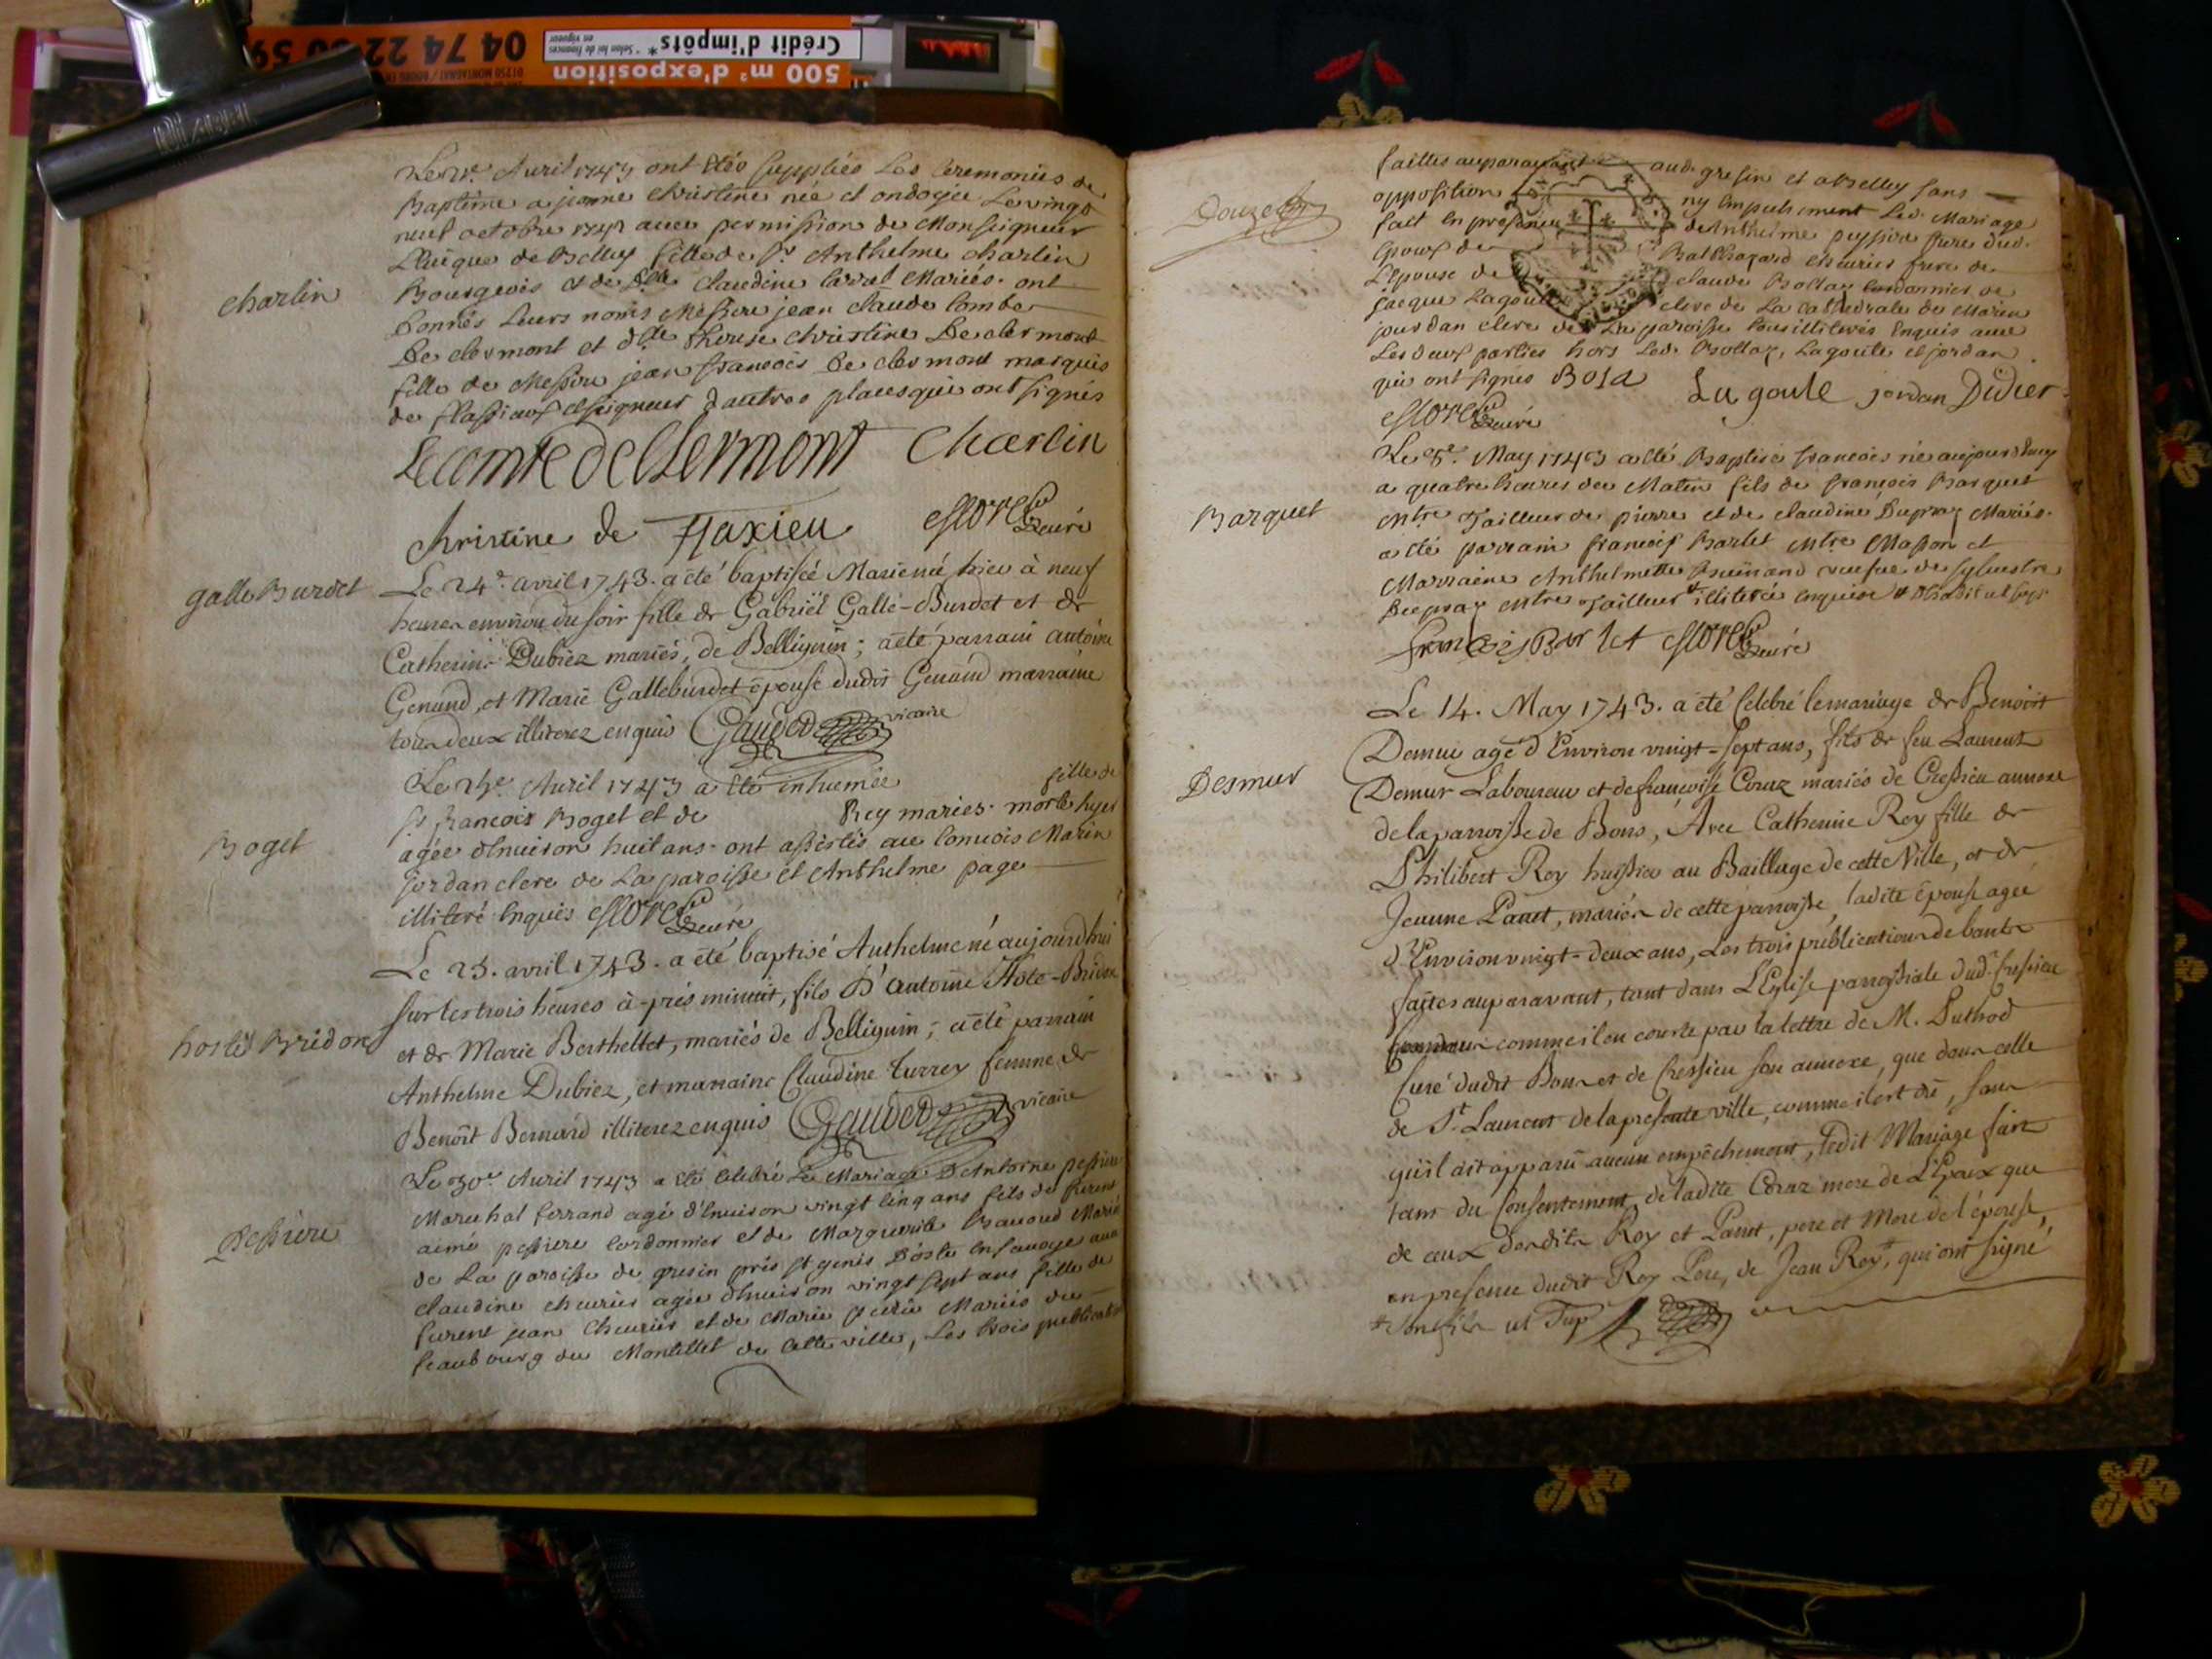 04 74 22
Crédit d'impôts*
* Selon loi de finances
en vigueur
500 m² d'exposition
Avril 1743 ont étés suppliés Les Ceremonies de
Baptème a jeanne christine née et ondoyée Le vingt
neuf octobre avec permission de Monseigneur
de Belley fille de Sr Anthelme charlin
charlin
Bourgeois et de dlle claudine Mariés. ont
donnés Leurs noms Messire jean claude comte
De clermont et dlle Therese christine De clermont
fille de Messire jean françois De clermont marquis
de et seigneur d'autres places qui ont signés
Le comte de Clermont Charlin
christine de flaxieu curé
galle Burdet
Le 24e. avril 1743. a été baptiséé Marie née hier à neuf
heures environ du soir fille de Gabriël Gallé-Burdet et de
Catherine Dubiez mariés, de Belliguin; a été parrain antoine
Genand, et Marie Galleburdet épouse dudit Genand marraine
tous deux illiterez enquis Gaudet vicaire
Avril 1743 a été inhumée fille de
Boget
sr françois Boget et de Rey mariés. morte hyer
agée d'enuiron huit ans. ont assistés au conuois Marin
jordan clerc de La paroisse et Anthelme page
illiteré Enquis curé
Le 25. avril 1743. a été baptisé Anthelme né aujourd'hui
sur les trois heures à-prés minuit, fils D'antoine Hote-Bridon
hoste Bridon
et de Marie Berthellet, mariés de Belliguin; a été parrain
Anthelme Dubiez, et marraine Claudine Turrey femme de
Benoît Bernard illiterez enquis Gaudet vicaire
Le 30e Avril 1743 a été celebré Le Mariage D'Antoine pessiere
Pessiere
Marechal ferrand agé d'Enuiron vingt cinq ans fils de furent
aimé pessiere cordonnier et de Marguerite Mariés
de La paroisse de gresin prés st genis D'oste en sauoye auec
claudine cheurier agée d'enuiron vingt sept ans fille de
furent jean cheurier et de Marie Mariés du
feaubourg du Montillet de cette ville, Les trois publications
failles auparauant aud. gresin et a Belley sans
opposition ny Empechement Led. Mariage
fait En presence de Anthelme pessiere frere dud.
Epoux de Balthazard cheurier frere de
L'Epouse de claude Bollaz cordonnier de
jacque Lagoute clerc de La cathedrale de Marin
jourdan clerc de La paroisse tous illiterés Enquis auec
Les deux parties hors Led. Bollaz, Lagoute et jordan
qui ont signés Bola La goute jordan Didier
curé
Le 5e. May 1743 a été Baptisé françois né aujourdhuy
a quatre heures du Matin fils de françois Barquet
Barquet
Mtre Tailleur de pierre et de claudine Dupraz Mariés.
a été parrain françois Barlet Mtre Masson et
Marraine Anthelmette veufue de syluestre
Dupraz Mtre Tailleur illiterée enquise
francois Barlet curé
Le 14. May 1743. a été Celebré le mariage de Benoist
Demur agé d'Environ vingt-sept ans, fils de feu Laurent
Desmur
Demur Laboureur et de françoise Coraz mariés de Cressieu annexe
de la parroisse de Bons, Avec Catherine Rey fille de
Philibert Rey huissier au Bailliage de cette Ville, et de
Jeanne Panet, mariés de cette parroisse, ladite épouse agée
d'Environ vingt-deux ans, Les trois publications de bants
faites auparavant, tant dans L'Eglise parroissiale dud. Cressieu
comme il en conste par la lettre de M. Duthod
Curé dudit Bons et de Cressieu son annexe, que dans celle
de St. Laurent de la presente ville, comme il est dit, sans
qu'il ait apparu aucun empêchement, ledit Mariage fait
tant du Consentement de ladite Coraz mere de L'Epoux que
de ceux desdits Rey et Panet, pere et Mere de l'épouse,
en presence dudit Rey Pere, de Jean Rey, qui ont signé
son fils ut sup